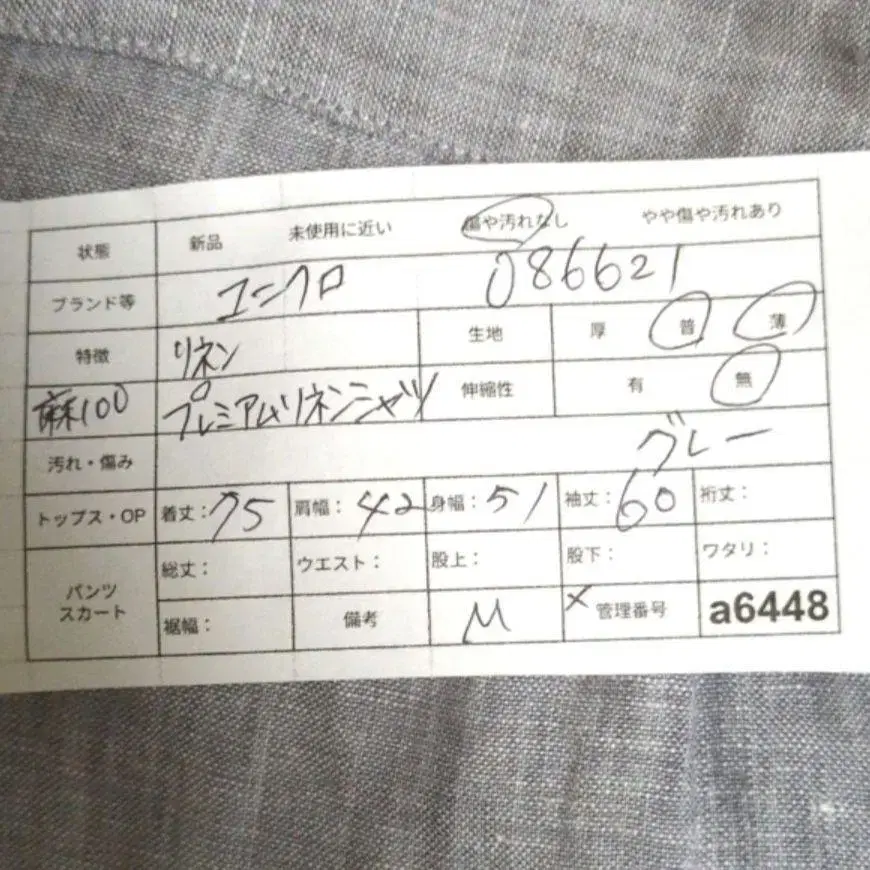 状態 新品 未使用に近い 傷や汚れなし やや傷や汚れあり
ブランド等 ユニクロ 086621
特徴 リネン 生地 厚 普 薄
麻100 プレミアムリネンシャツ 伸縮性 有 無
汚れ・傷み グレー
トップス・OP 着丈:75 肩幅:42 身幅:51 袖丈:60 裄丈:
パンツ 総丈: ウエスト: 股上: 股下: ワタリ:
スカート 裾幅: 備考 M × 管理番号 a6448